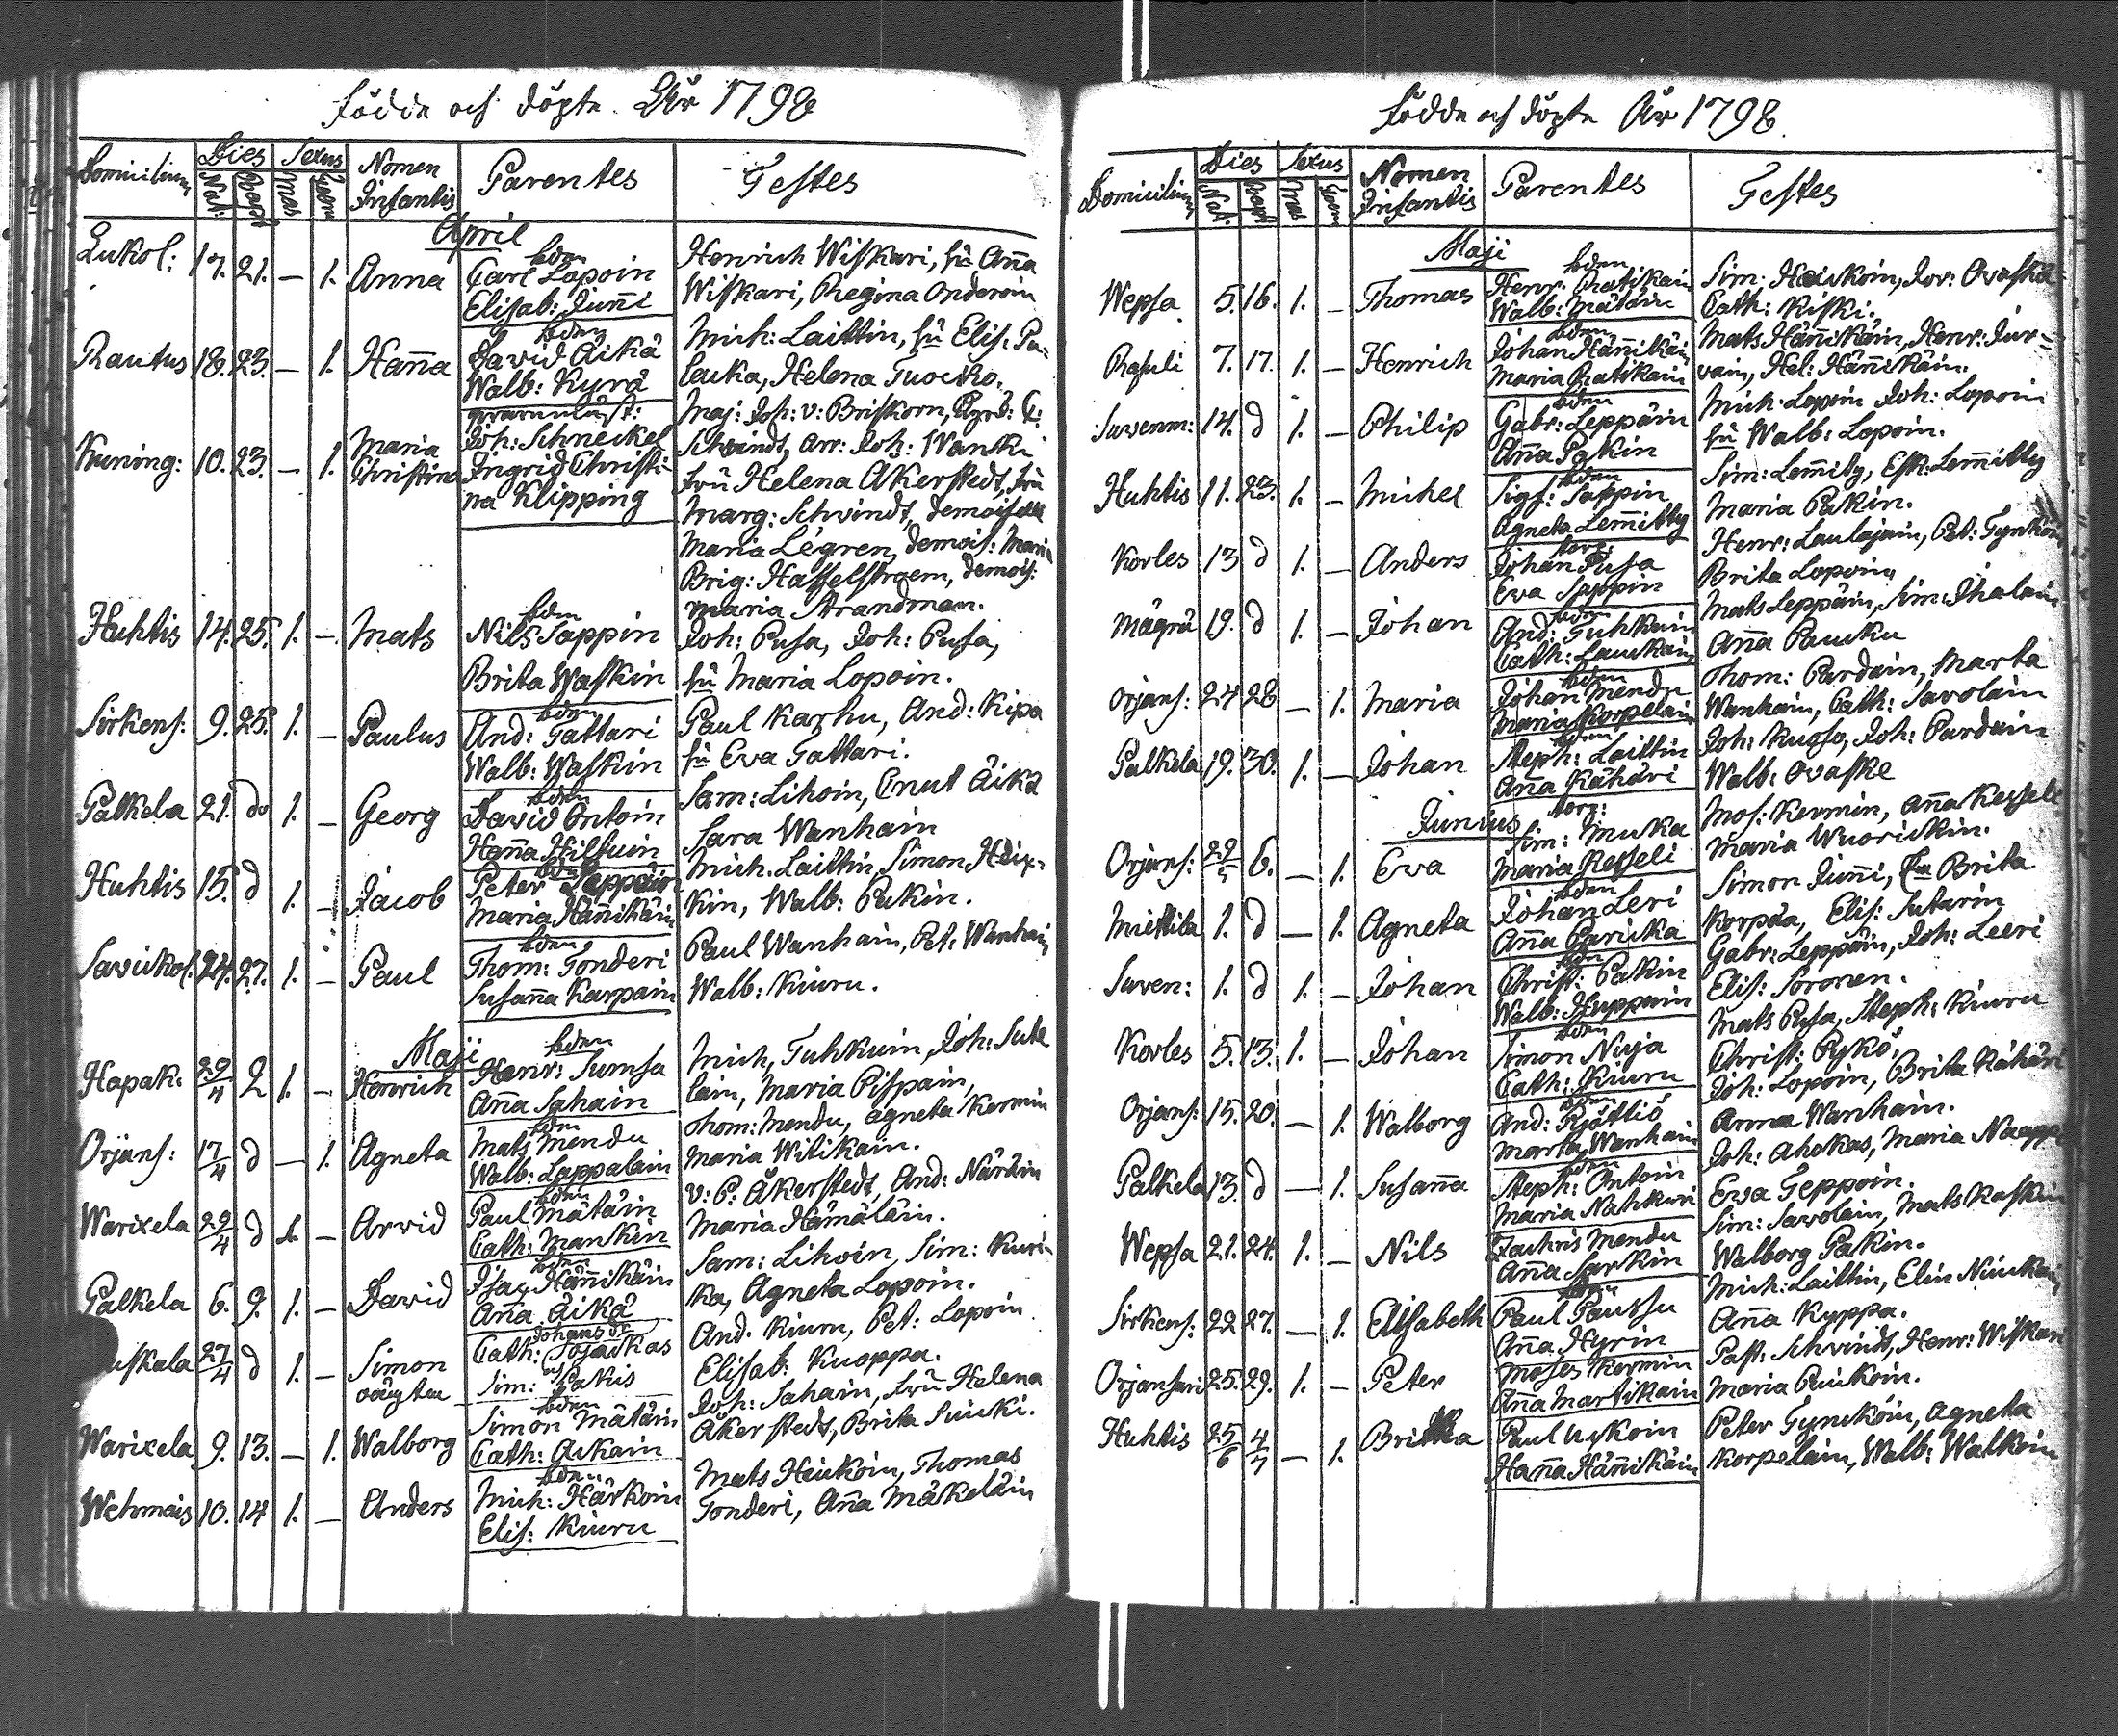 Födde och döpte År 1798
Domicilium Dies Sexus Nomen Infantis Parentes Testes
Nat: Bapt Mas Foem
April
Lukol: 17. 21. — 1. Anna
bden
Carl Lopoin
Elisab: Juñi
Henrich Wiskari, hü Aña
Wiskari, Regina Onderoin
Rautus 18. 23. — 1. Haña
bden
David Äikä
Walb: Kyrä
Mich: Laittin, hü Elis: Pa-
Helena
Kuning: 10. 23. — 1. Maria
Christina
Joh: Schneckel
Ingrid Christi-
na Klipping
Maj: Joh: v: Briskorn,
Schvindt, arr: Joh: Wanki
frü Helena Akerstedt, frü
Marg: Schvindt, demoiselle
Maria Legren, demois: Maria
Brig: Hasselstroem, demois:
Maria Strandman.
Huhtis 14. 25. 1. — Mats
bden
Nils Sappin
Brita Waskin
Joh: Pusa, Joh: Pusa,
hü Maria Lopoin.
Sirkens: 9. 25. 1. — Paulus
bden
And: Tattari
Walb: Waskin
Paul Karhu, And: Kipa
hü Eva Tattari.
Palkela 21. do 1. — Georg
bden
David Ontoin
Haña Hiltuin
Sam: Lihoin, Cnut Äikä
Sara Wanhain
Huhtis 15. d 1. — Jacob
bden
Peter Leppäin
Maria Häñikäin
Mich: Laittin, Simon Heix-
kin, Walb: Pukin.
Savikol: 24. 27. 1. — Paul
bden
Thom: Tonderi
Susaña Karpain
Paul Wanhain, Pet: Wanhain
Walb: Kiuru.
Maji
Hapak: 29/4 2 1. — Henrich
bden
Henr: Sumsa
Aña Sahain
Mich, Tuhkuin, Joh: Sute
lain, Maria Pispain,
Orjans: 17/4 d — 1. Agneta
bden
Mats Mendu
Walb: Lappalain
Thom: Mendu, Agneta Kermin
Maria Witikain.
Warixela 29/4 d 1. — Arvid
bden
Paul Mätäin
Cath: Manskin
v: P: Åkerstedt, And: Näräin
Maria Hämäläin.
Palkela 6. 9. 1. — David
bden
Isac Häñikäin
Aña Äikä
Sam: Lihoin, Sim: Kuri-
ka, Agneta Lopoin.
27/4 d 1. — Simon
oägta
Johans dr
Cath:
Sim: Pakis
And. Kiuru, Pet: Lopoin
Elisab: Kuoppa.
Warixela 9. 13. — 1. Walborg
bden
Simon Mätäin
Cath: Askain
Joh: Sahain, frü Helena
Åkerstedt, Brita Suicki.
Wehmais 10. 14 1. — Anders
bden
Mich: Härkoin
Elis: Kiuru
Mats Heickoin, Thomas
Tonderi, Aña Mäkeläin
Födde och döpte År 1798
Domicilium Dies Sexus Nomen Infantis Parentes Testes
Nat. Bapt Mas Foem
Maji
Wepsa 5. 16. 1. — Thomas
bden
Henr: Ratikain
Walb: Mätäin
Sim: Heickoin, Iov: Ovaska
Cath: Kiski.
Rasuli 7. 17. 1. — Henrich
bden
Johan Häñikäin
Maria Ratikain
Mats Häñikäin, Henr: Jur-
vain, Hel: Häñikäin.
Suvenm: 14. d 1. — Philip
bden
Gabr: Leppäin
Aña Pakin
Mich: Lopoin Joh: Lopoin
hü Walb: Lopoin.
Huhtis 11. 23. 1. — Michel
bden
Sigf: Sappin
Agneta Lem̃itty
Sim: Lem̃ity, Esk: Lem̃itty
Maria Pukin.
Korles 13 d 1. — Anders
torp:
Johan Pusa
Eva Sappin
Henr: Laulajain, Pet: Tynköin
Brita Lopoin,
Mägrä 19. d 1. — Johan
bden
And: Tuhkuin
Cath: Lauckain
Mats Leppäin, Sim: Ihalain
Aña Paucku
Orjans: 24 28 — 1. Maria
bden
Johan Mendu
Maria Korpelain
Thom: Pardain, Marta
Wanhain, Cath: Savolain
Palkela 19. 30. 1. — Johan
bden
Steph: Laittin
Aña Kähäri
Joh: Kuoso, Joh: Pardain
Walb: Ovaske
Junius
Orjans: 29/5 6. — 1. Eva
torp:
Sim: Muka
Maria Kesseli
Mos: Kermin, Aña Kesseli
Maria Wuorickin.
Miettila 1. d — 1. Agneta
bden
Johan Leri
Aña Paricka
Simon Juñi, Brita
Korpela, Elis: Sutarin
Suven: 1. d 1. — Johan
bden
Christ: Pakin
Walb: Huppuin
Gabr: Leppäin, Joh: Leeri
Elis: Soronen.
Korles 5. 13. 1. — Johan
bden
Simon Nuja
Cath: Kiuru
Mats Pusa, Steph: Kiuru
Christ: Pykö.
Orjans: 15. 20. — 1. Walborg
bden
And: Pjöttiö
Marta Wanhain
Joh: Lopoin, Brita Kähäri
Anna Wanhain.
Palkela 13. d — 1. Susaña
bden
Steph: Ontoin
Maria Nahkuri
Joh: Ahokas, Maria
Eva Teppoin.
Wepsa 21. 24. 1. — Nils
Zachris Mendu
Aña Sarkin
Sim: Savolain, Mats Kaskin
Walborg Pakin.
Sirkens: 22 27. — 1. Elisabeth
bden
Paul Paussu
Aña Hyrin
Mich: Laittin, Elin Nuickain
Aña Kyppa.
Orjansari 25. 29. 1. — Peter
Moses Kermin
Aña Martikain
Past: Schvindt, Henr: Wiskari
Maria Puickoin.
Huhtis 25/6 4/7 — 1. Britha
Paul Uskoin
Haña Häñikäin
Peter Tyncköin, Agneta
Korpelain, Walb: Walkoin